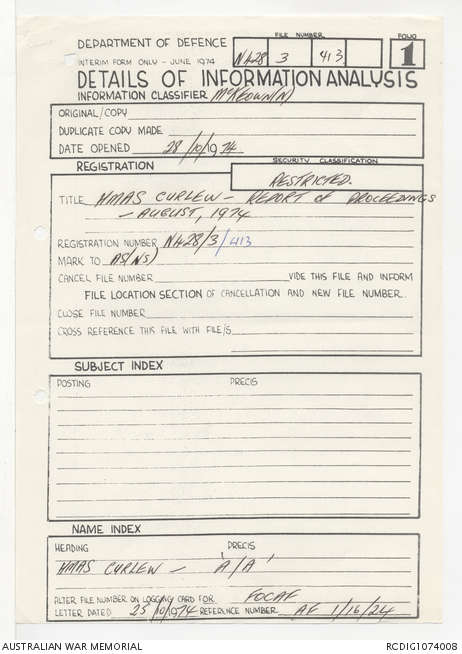 DEPARTMENT OF DEFENCE
FILE NUMBER
FOLIO
N428 3 413
1
INTERIM FORM ONLY - JUNE 1974
DETAILS OF INFORMATION ANALYSIS
INFORMATION CLASSIFIER McKEOWN(N)
ORIGINAL/COPY
DUPLICATE COPY MADE
DATE OPENED 28/10/1974
REGISTRATION
SECURITY CLASSIFICATION
RESTRICTED.
TITLE HMAS CURLEW - REPORT OF PROCEEDINGS
- AUGUST, 1974
REGISTRATION NUMBER N428/3/413
MARK TO AS(NS)
CANCEL FILE NUMBER VIDE THIS FILE AND INFORM
FILE LOCATION SECTION OF CANCELLATION AND NEW FILE NUMBER.
CLOSE FILE NUMBER
CROSS REFERENCE THIS FILE WITH FILE/S
SUBJECT INDEX
POSTING PRECIS
NAME INDEX
HEADING PRECIS
HMAS CURLEW - 'A/A'
ALTER FILE NUMBER ON LOGGING CARD FOR FOCAF
LETTER DATED 23/10/1974 REFERENCE NUMBER AF 1/16/24
AUSTRALIAN WAR MEMORIAL
RCDIG1074008